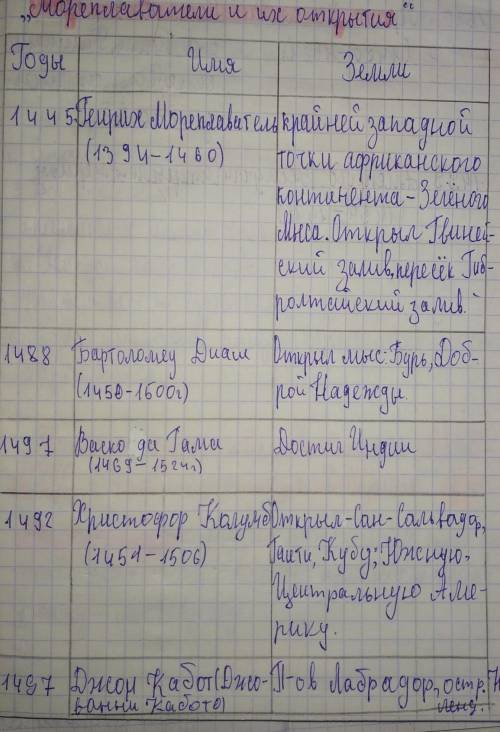 „Мореплаватели и их открытия"
Годы Имя Земли
1445 Генрих Мореплаватель
(1394-1460)
крайней западной
точки африканского
континента - Зелёного
Мыса. Открыл Гвиней-
ский залив, пересёк Гиб-
ролтайский залив.
1488 Бартоломеу Диаш
(1450-1500г)
Открыл мыс: Бурь, Доб-
рой Надежды.
1497 Васко да Гама
(1469-1524г)
Достиг Индии
1492 Христофор Колумб
(1451-1506)
Открыл-Сан-Сальвадор,
Гаити, Кубу; Южную,
Центральную Аме-
рику.
1497 Джон Кабот (Джо-
ванни Кабото)
П-ов Лабрадор, остр.